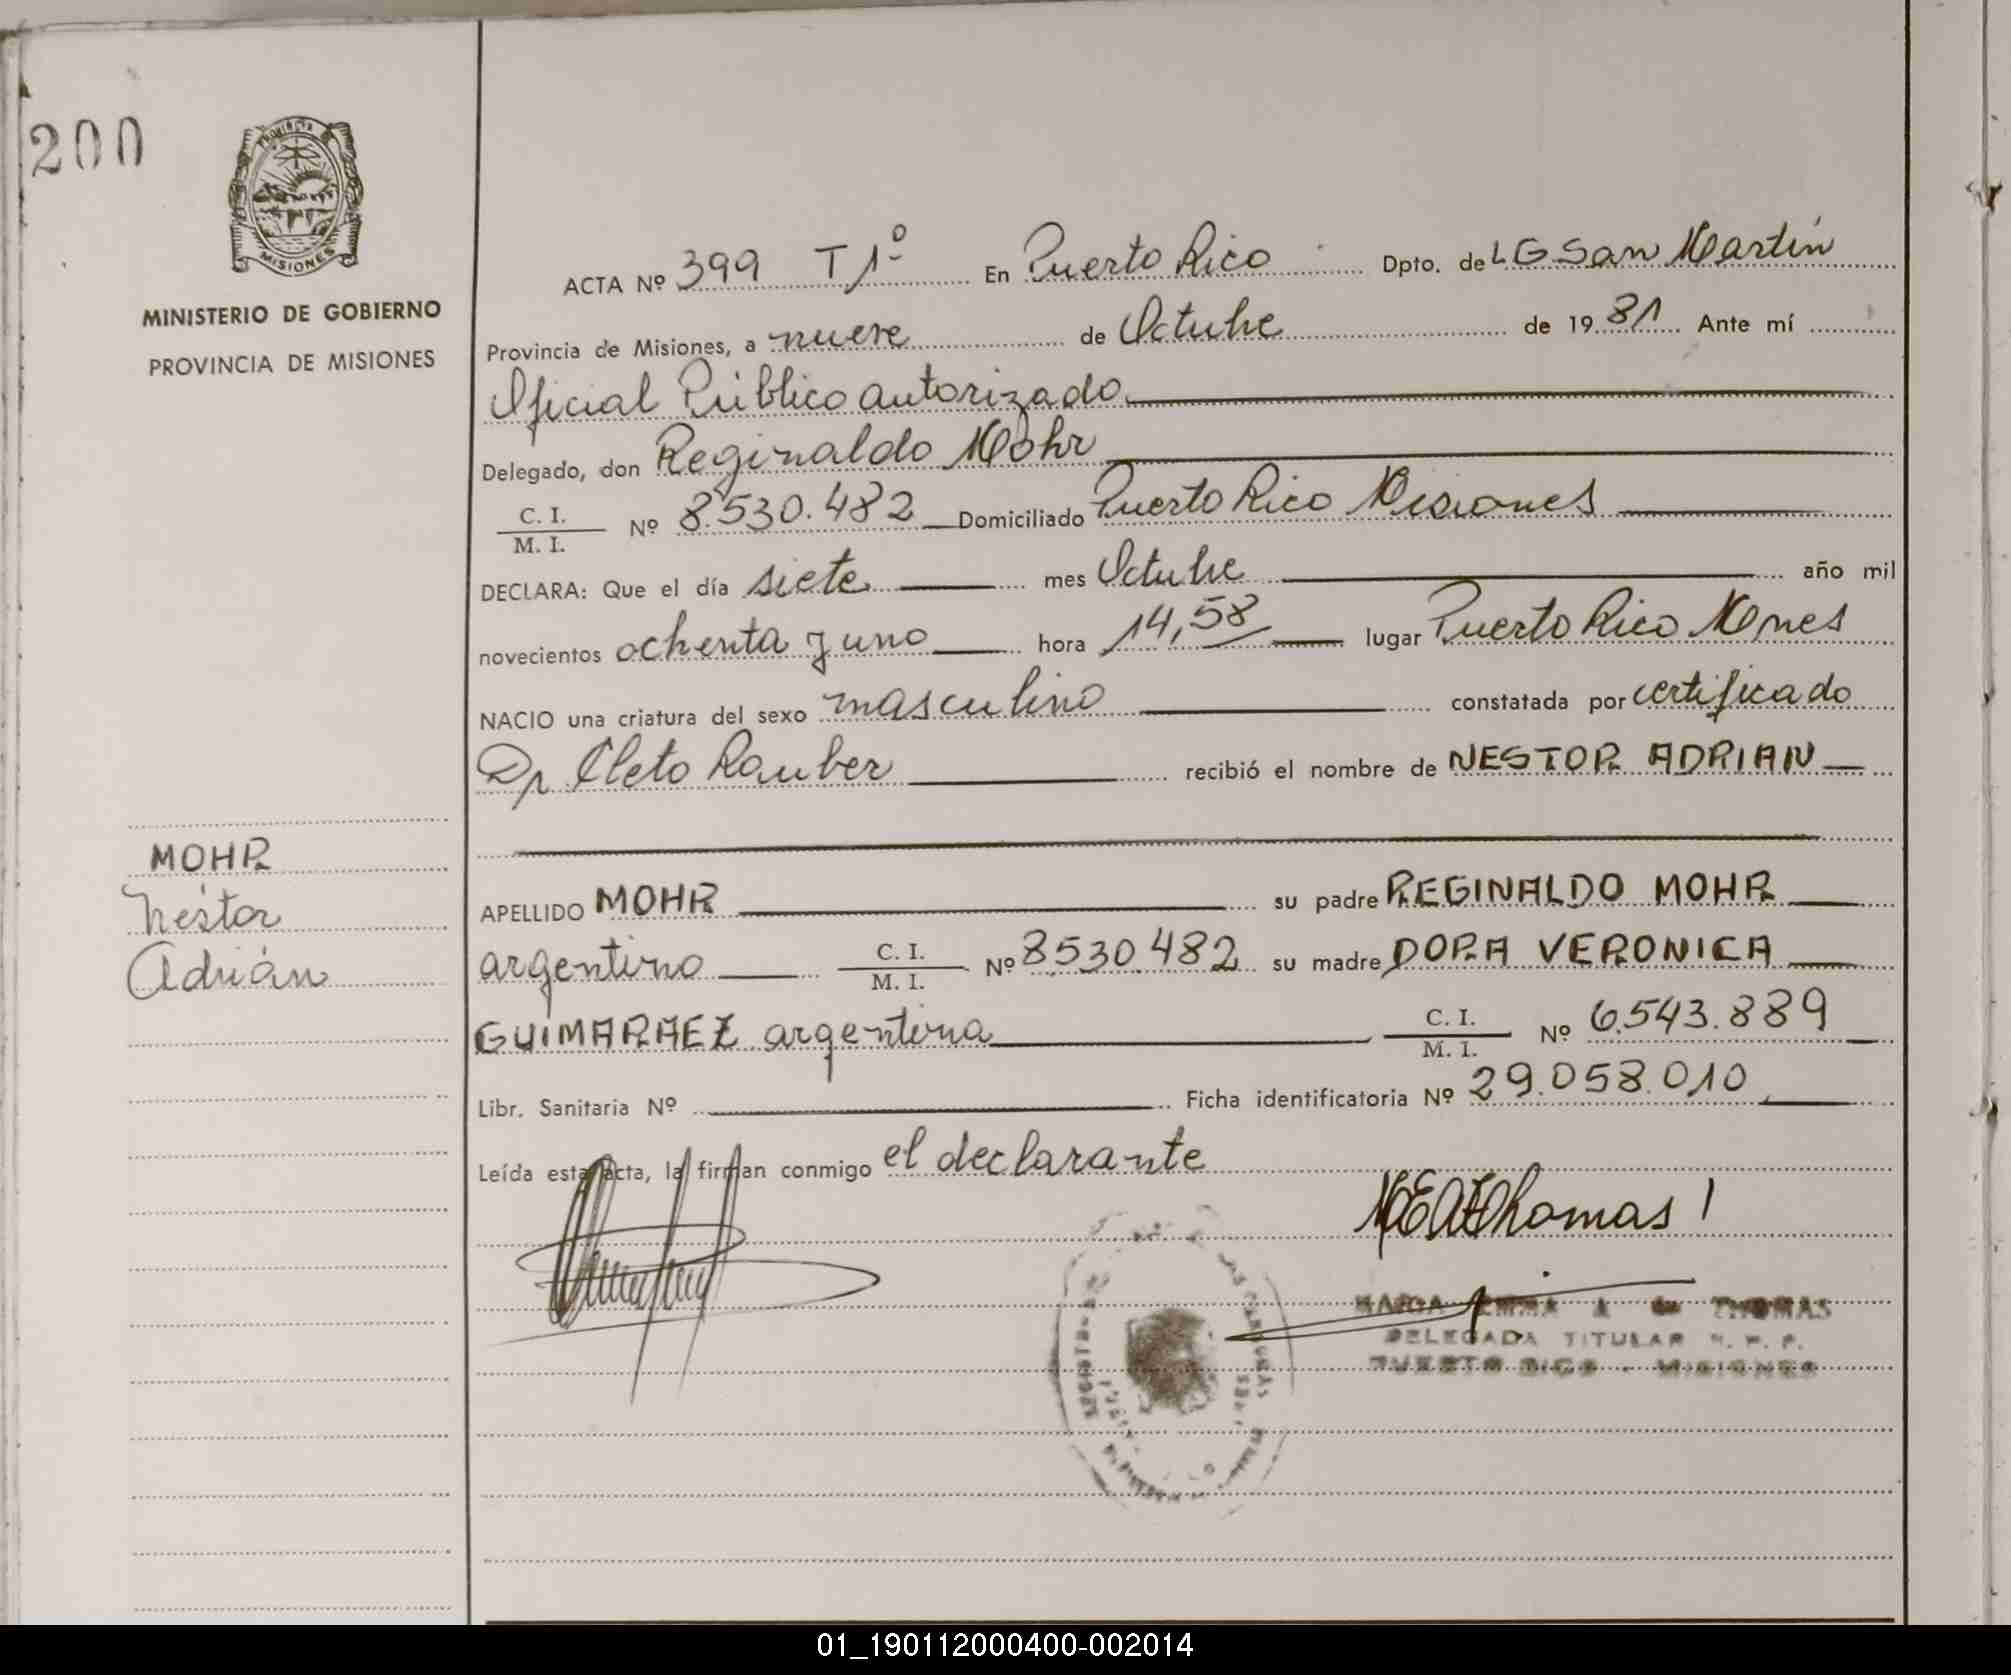 200
Provincia
MISIONES
MINISTERIO DE GOBIERNO
PROVINCIA DE MISIONES
ACTA Nº 399 T 1º En Puerto Rico Dpto. de L G San Martín
Provincia de Misiones, a nueve de Octubre de 1981 Ante mí
Oficial Público autorizado
Delegado, don Reginaldo Mohr
C. I.
M. I. Nº 8.530.482 Domiciliado Puerto Rico Misiones
DECLARA: Que el día siete mes Octubre año mil
novecientos ochenta y uno hora 14,58 lugar Puerto Rico Mnes
NACIO una criatura del sexo masculino constatada por certificado
Dr Cleto Rauber recibió el nombre de NESTOR ADRIAN
MOHR
Néstor
Adrián
APELLIDO MOHR su padre REGINALDO MOHR
argentino C. I. M. I. Nº 8.530.482 su madre DORA VERONICA
GUIMARAEZ argentina C. I. M. I. Nº 6.543.889
Libr. Sanitaria Nº Ficha identificatoria Nº 29.058.010
Leída esta acta, la firman conmigo el declarante
MEAThomas
MARIA EMMA A de THOMAS
DELEGADA TITULAR R. P. P.
PUERTO RICO - MISIONES
01_190112000400-002014